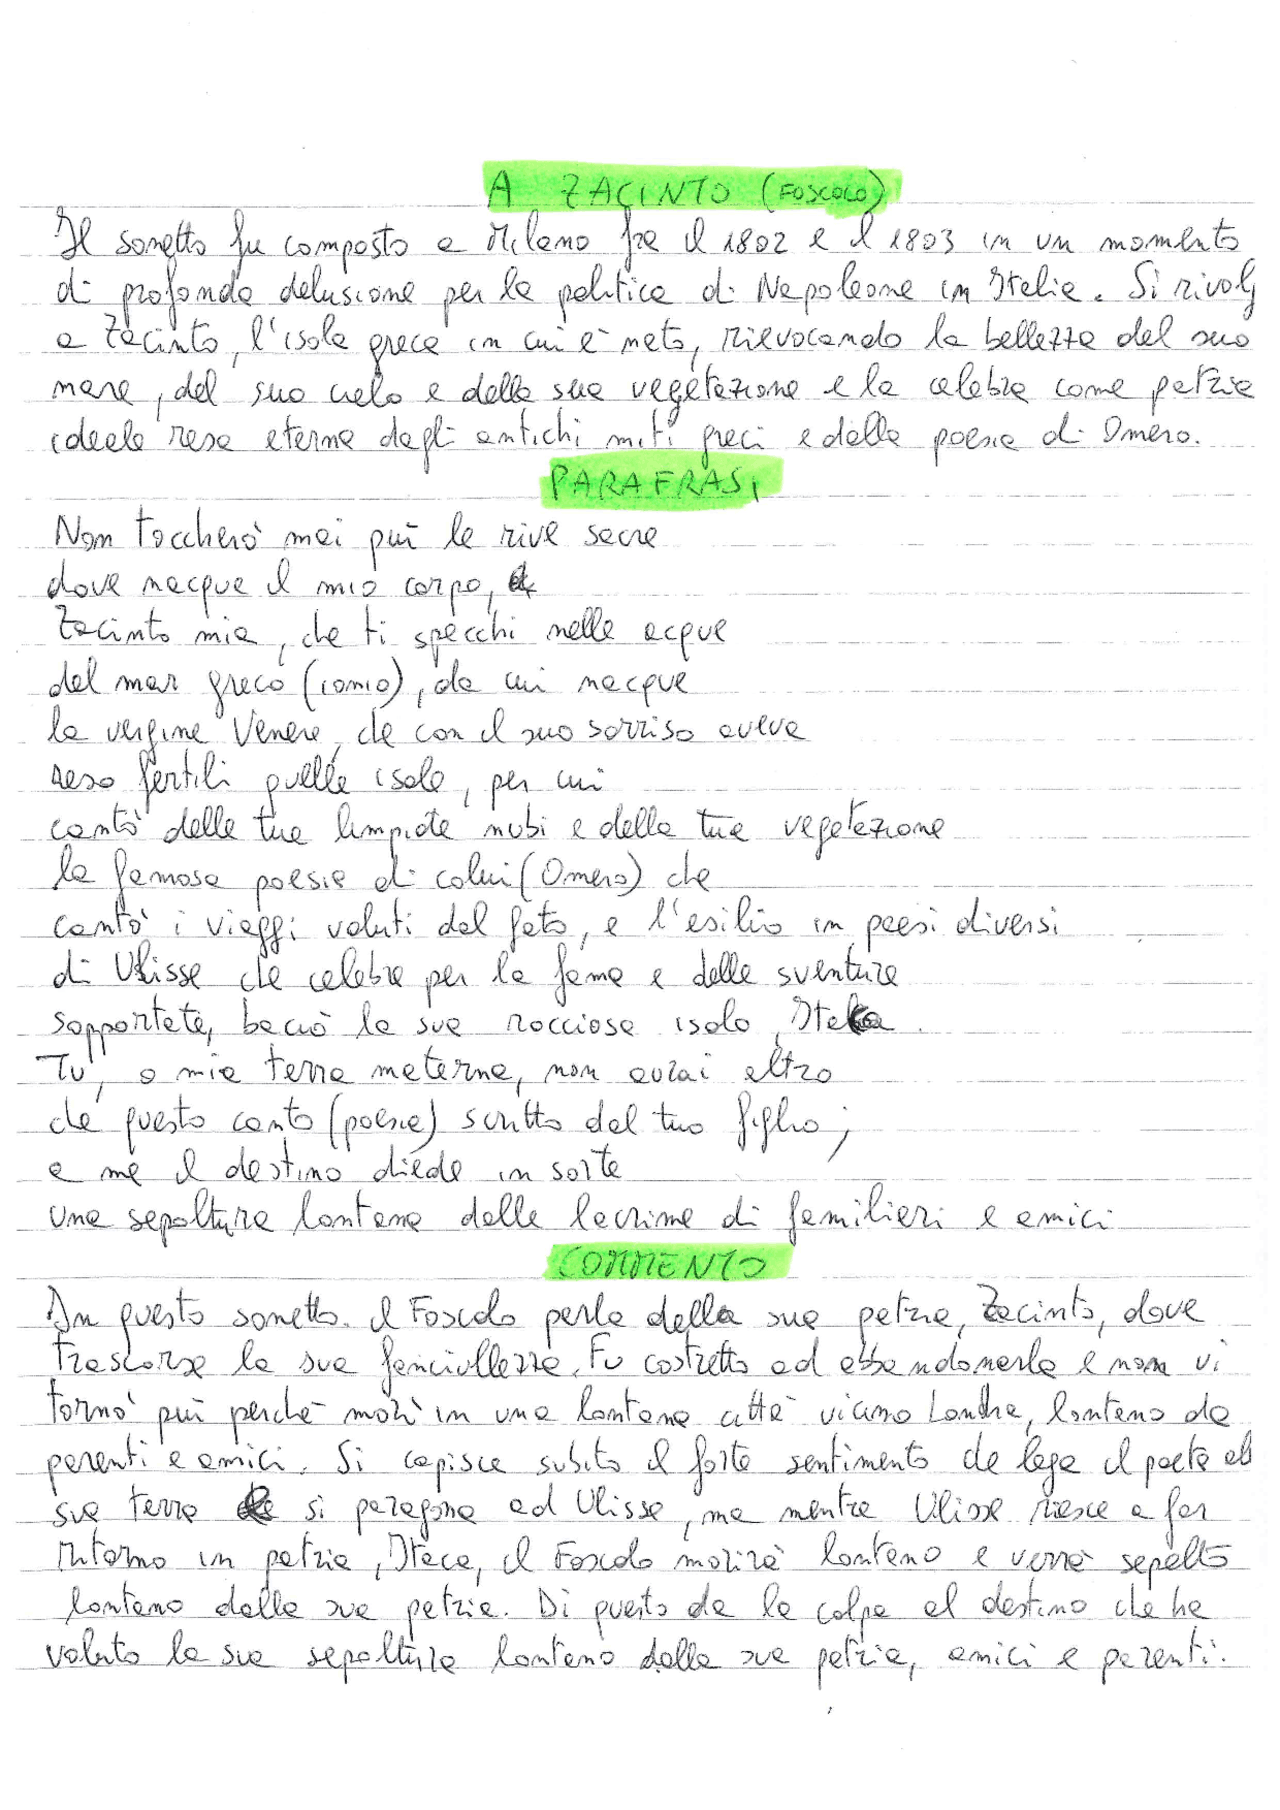 A ZACINTO (FOSCOLO)
Il sonetto fu composto a Milano fra il 1802 e il 1803 in un momento
di profonda delusione per la politica di Napoleone in Italia. Si rivolg
a Zacinto, l'isola greca in cui è nato, rievocando la bellezza del suo
mare, del suo cielo e della sua vegetazione e la celebra come patria
ideale resa eterna dagli antichi miti greci e dalla poesia di Omero.
PARAFRASI
Non toccherò mai più le rive sacre
dove nacque il mio corpo,
Zacinto mia, che ti specchi nelle acque
del mar greco (ionio), da cui nacque
la vergine Venere, che con il suo sorriso aveva
reso fertili quelle isole, per cui
cantò delle tue limpide nubi e della tua vegetazione
la famosa poesia di colui (Omero) che
cantò i viaggi voluti dal fato, e l'esilio in paesi diversi
di Ulisse che celebre per la fama e delle sventure
sopportate, baciò la sua rocciosa isola, Itaca.
Tu, o mia terra materna, non avrai altro
che questo canto (poesia) scritto dal tuo figlio;
a me il destino diede in sorte
una sepoltura lontana dalle lacrime di familieri e amici
COMMENTO
In questo sonetto il Foscolo parla della sua patria, Zacinto, dove
trascorse la sua fanciullezza. Fu costretto ad abbandonarla e non vi
tornò più perché morì in una lontana città vicino Londra, lontano da
parenti e amici. Si capisce subito il forte sentimento che lega il poeta al
sua terra si paragona ad Ulisse, ma mentre Ulisse riesce a far
ritorno in patria, Itaca, il Foscolo morirà lontano e verrà sepolto
lontano dalla sua patria. Di questo da la colpa al destino che ha
voluto la sua sepoltura lontano dalla sua patria, amici e parenti.